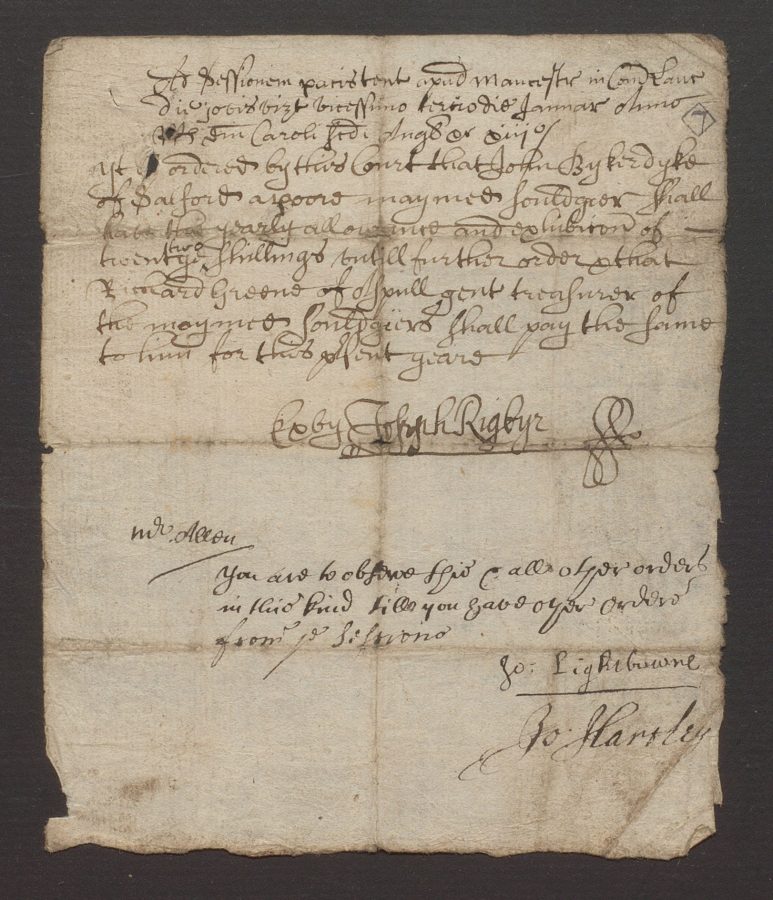 Ad Sessionem pacis tent apud Mancestr in Com Lanc
die jovis vizt vicessimo tertio die Januar Anno
Caroli scdi Angl &c xiiijo
yt is ordered by this Court that John Bykerdyke
of Salford a poore maymed souldgier shall
have the yearly allowance and exhibicon of
twentye two shillings untill further order & that
Richard Greene of Aspull gent treasurer of
the maymed souldgiers shall pay the same
to him for this psent yeare
Ex by Joseph Rigbye
7
Mr Allen
you are to observe this & all other orders
in this kind till you have other orders
from ye Sessions
Jo: Lightbowne
Jo: Hartley